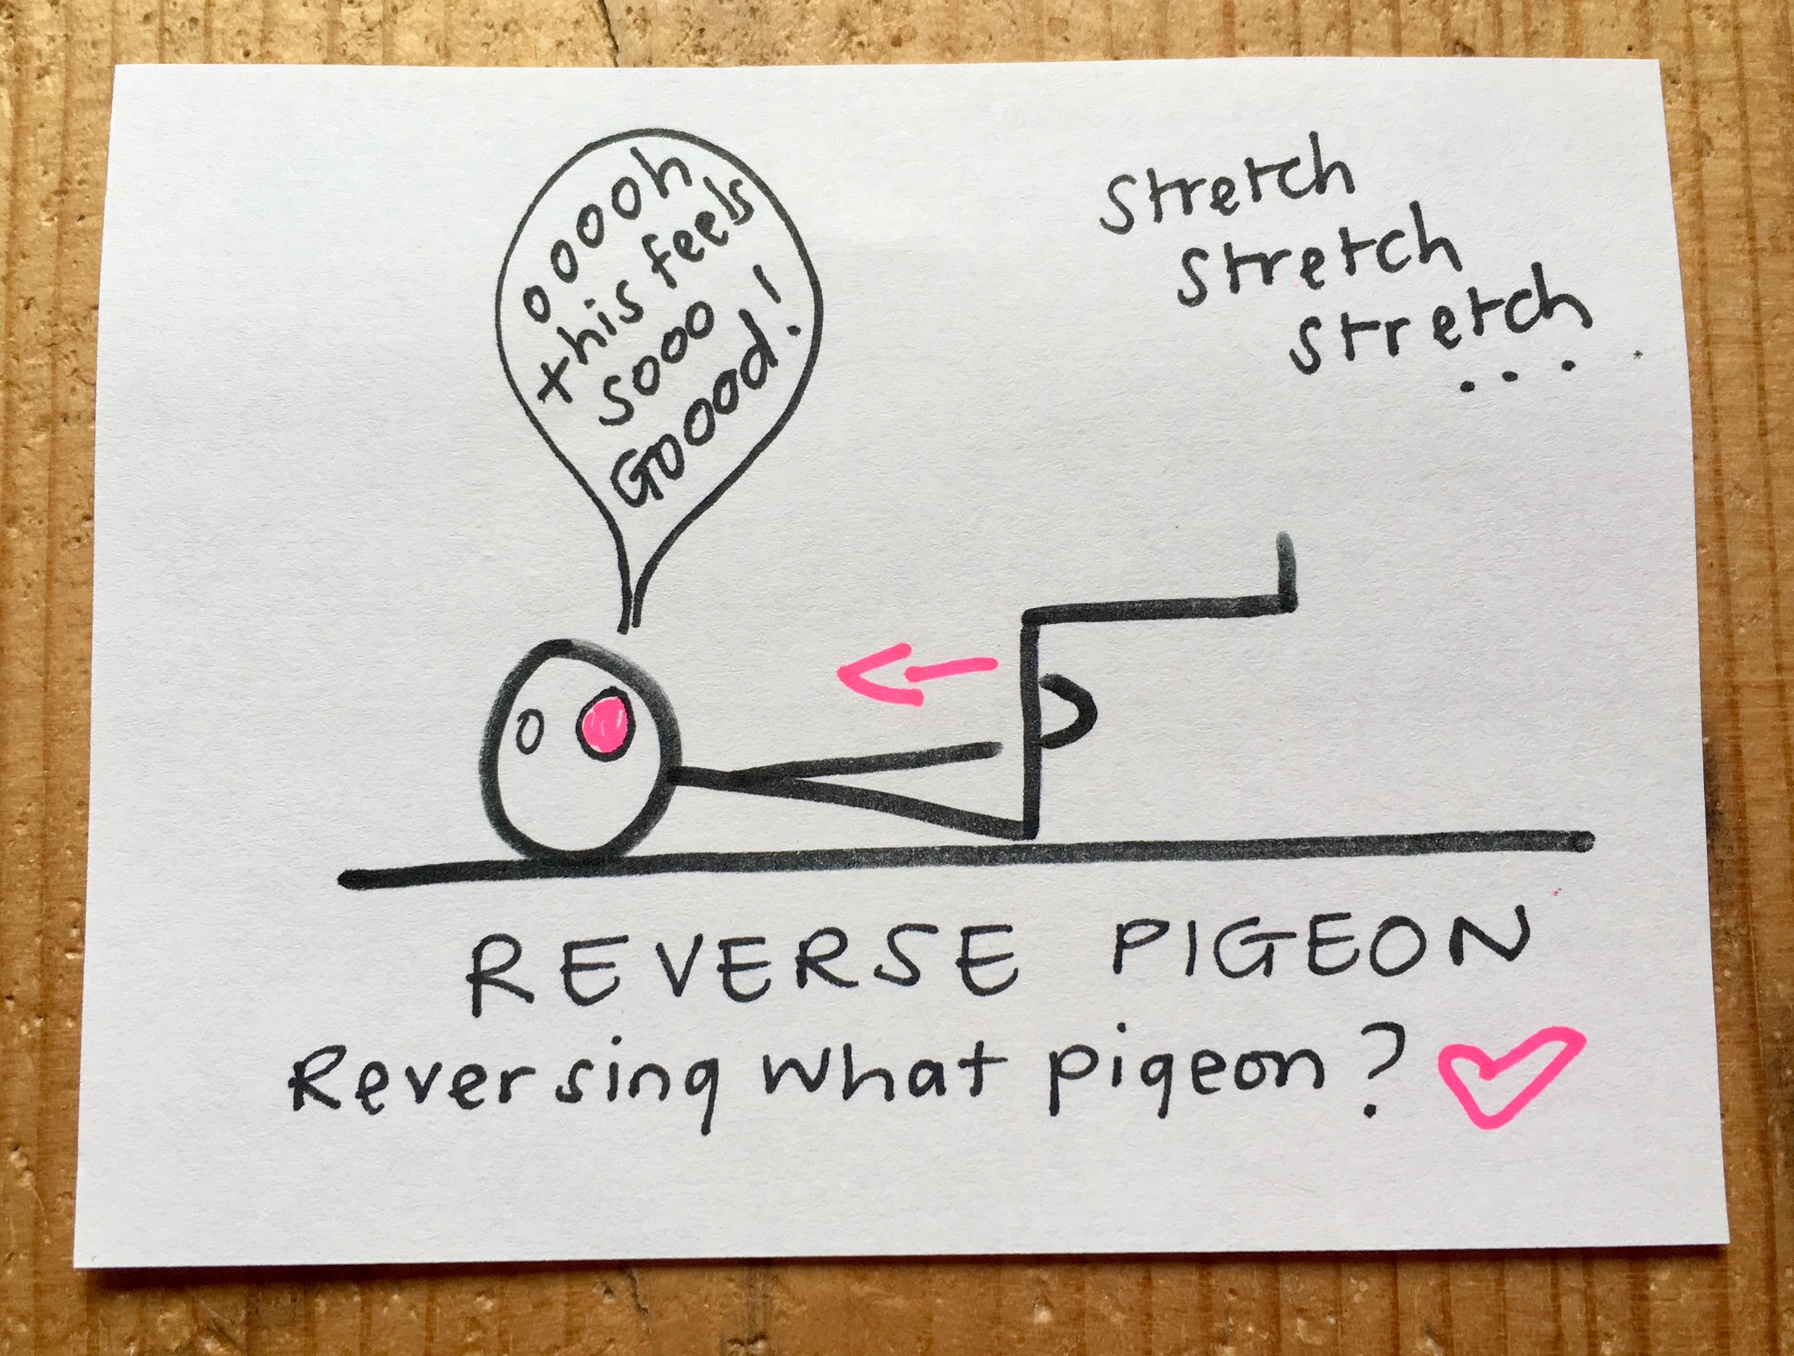 ooooh
this feels
sooo
Goood!
Stretch
Stretch
Stretch
...
REVERSE PIGEON
Reversing what pigeon?